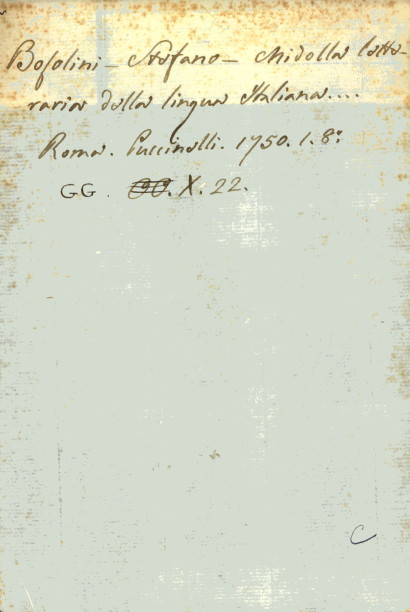 Bosolini - Stefano - Midolla lette-
raria della lingua Italiana....
Roma. Puccinelli. 1750. 1. 8º
GG. X. 22.
C